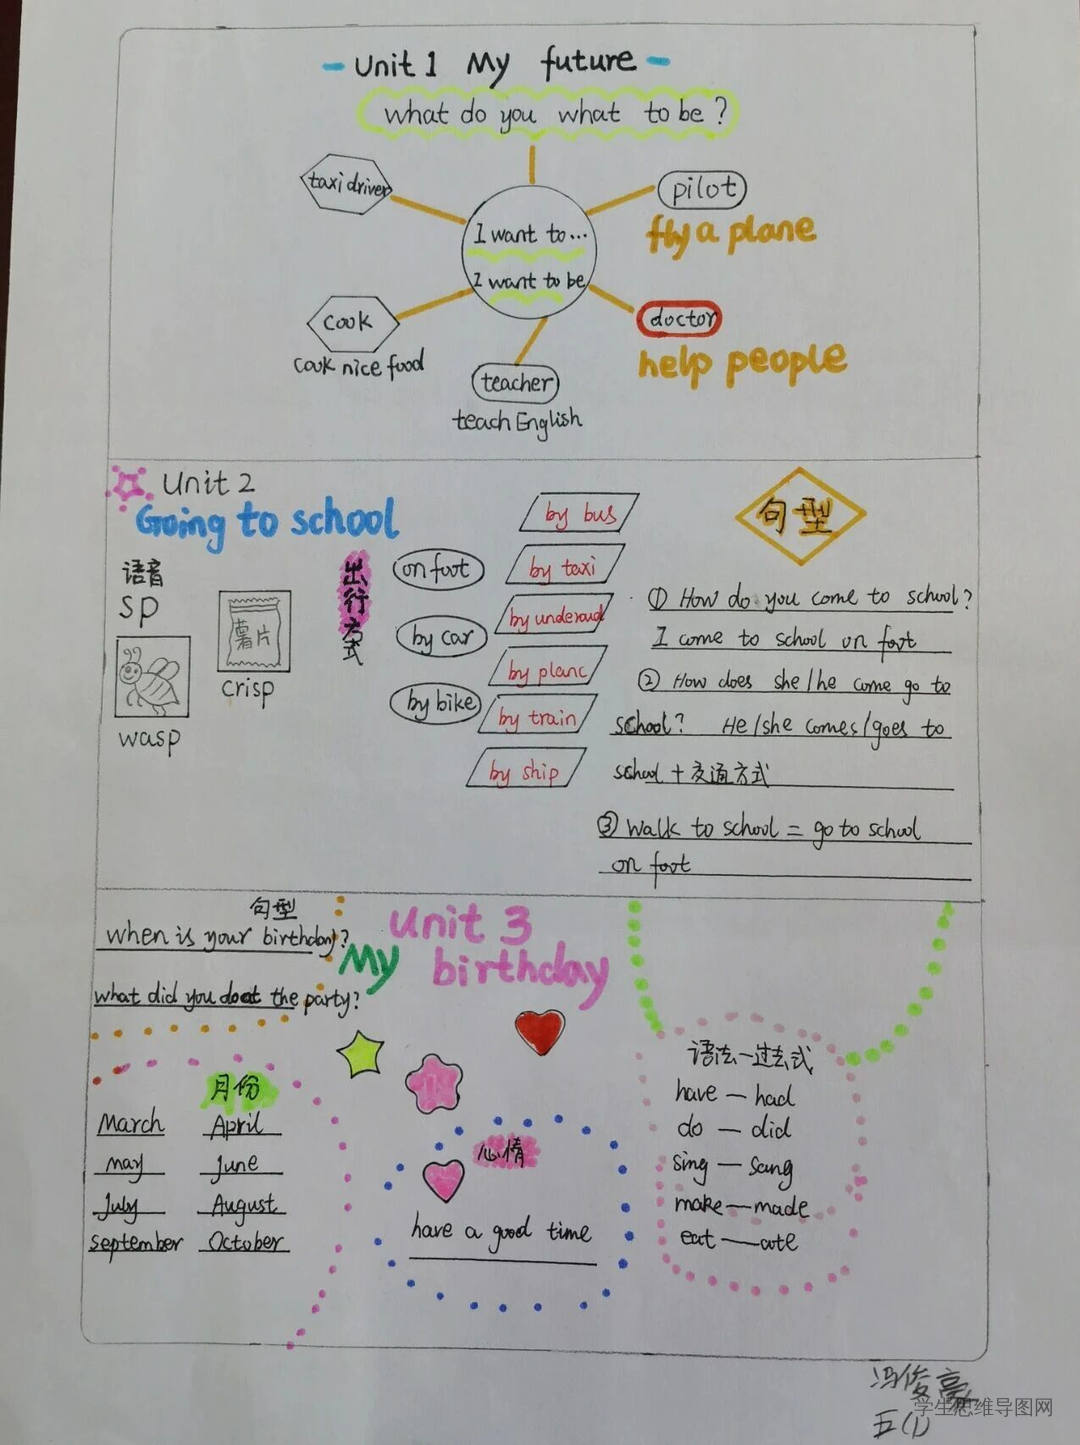 Unit 1 My future
what do you what to be?
taxi driver
pilot
fly a plane
I want to...
I want to be
cook
cook nice food
doctor
help people
teacher
teach English
Unit 2
Going to school
语音
sp
薯片
crisp
wasp
出行方式
on foot
by car
by bike
by bus
by taxi
by plane
by train
by ship
句型
① How do you come to school?
I come to school on foot
② How does she/he come go to
school? He/she comes/goes to
school + 交通方式
③ Walk to school = go to school
on foot
句型
when is your birthday?
what did you do at the party?
Unit 3
My birthday
月份
March April
may june
July August
september October
心情
have a good time
语法—过去式
have — had
do — did
sing — sang
make — made
eat — ate
冯俊豪
五(1)
学生思维导图网